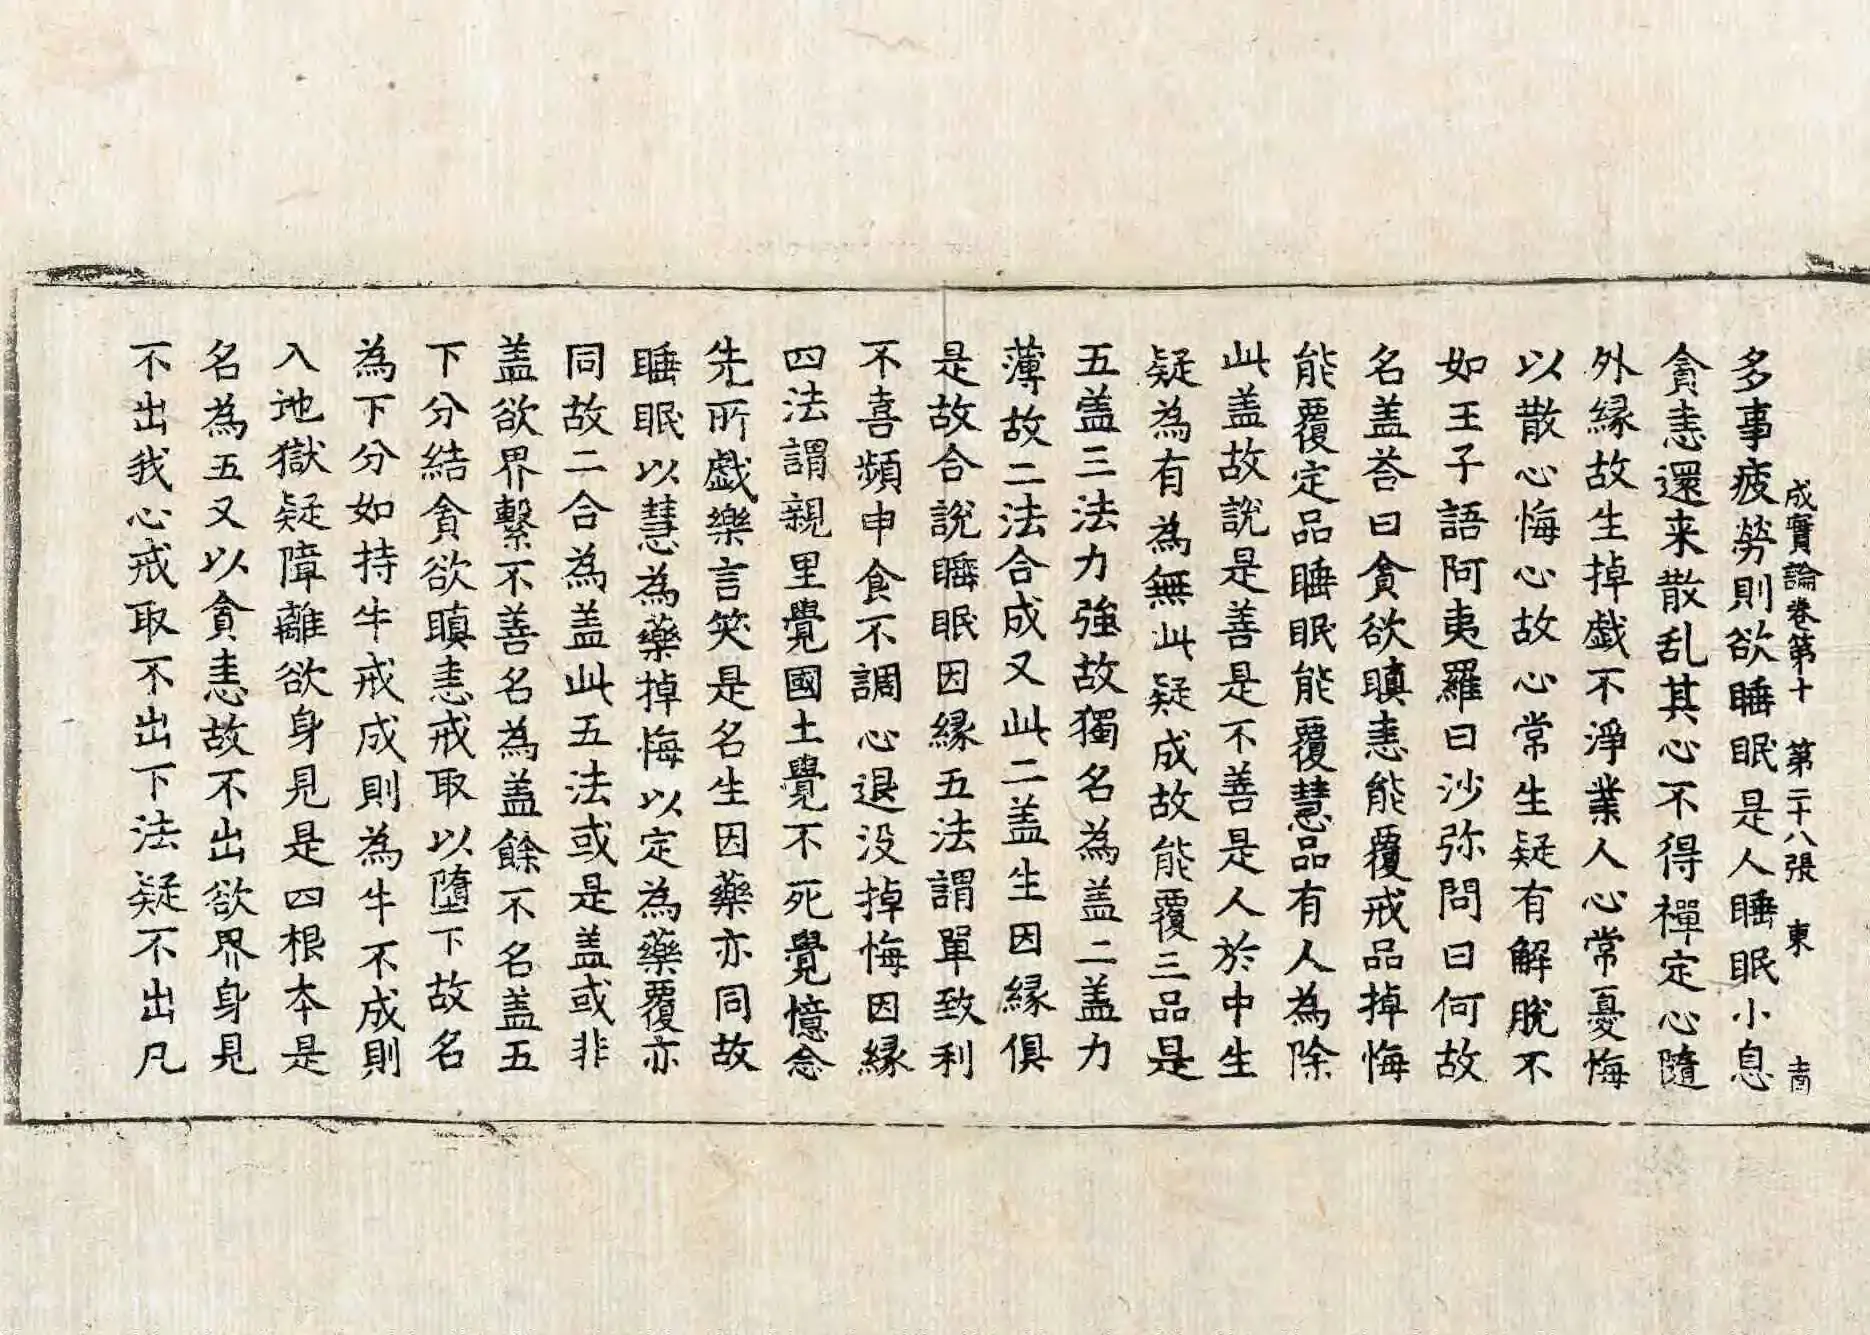 成實論卷第十 第二十八張 東 南
多事疲勞則欲睡眠是人睡眠小息
貪恚還来散乱其心不得禪定心隨
外縁故生掉戯不淨業人心常憂悔
以散心悔心故心常生疑有解脫不
如王子語阿夷羅曰沙弥問曰何故
名盖荅曰貪欲瞋恚能覆戒品掉悔
能覆定品睡眠能覆慧品有人為除
此盖故說是善是不善是人於中生
疑為有為無此疑成故能覆三品是
五盖三法力強故獨名為盖二盖力
薄故二法合成又此二盖生因縁俱
是故合說睡眠因縁五法謂單致利
不喜頻申食不調心退没掉悔因縁
四法謂親里覺國土覺不死覺憶念
先所戯樂言笑是名生因藥亦同故
睡眠以慧為藥掉悔以定為藥覆亦
同故二合為盖此五法或是盖或非
盖欲界繫不善名為盖餘不名盖五
下分結貪欲瞋恚戒取以墮下故名
為下分如持牛戒成則為牛不成則
入地獄疑障離欲身見是四根本是
名為五又以貪恚故不出欲界身見
不出我心戒取不出下法疑不出凡